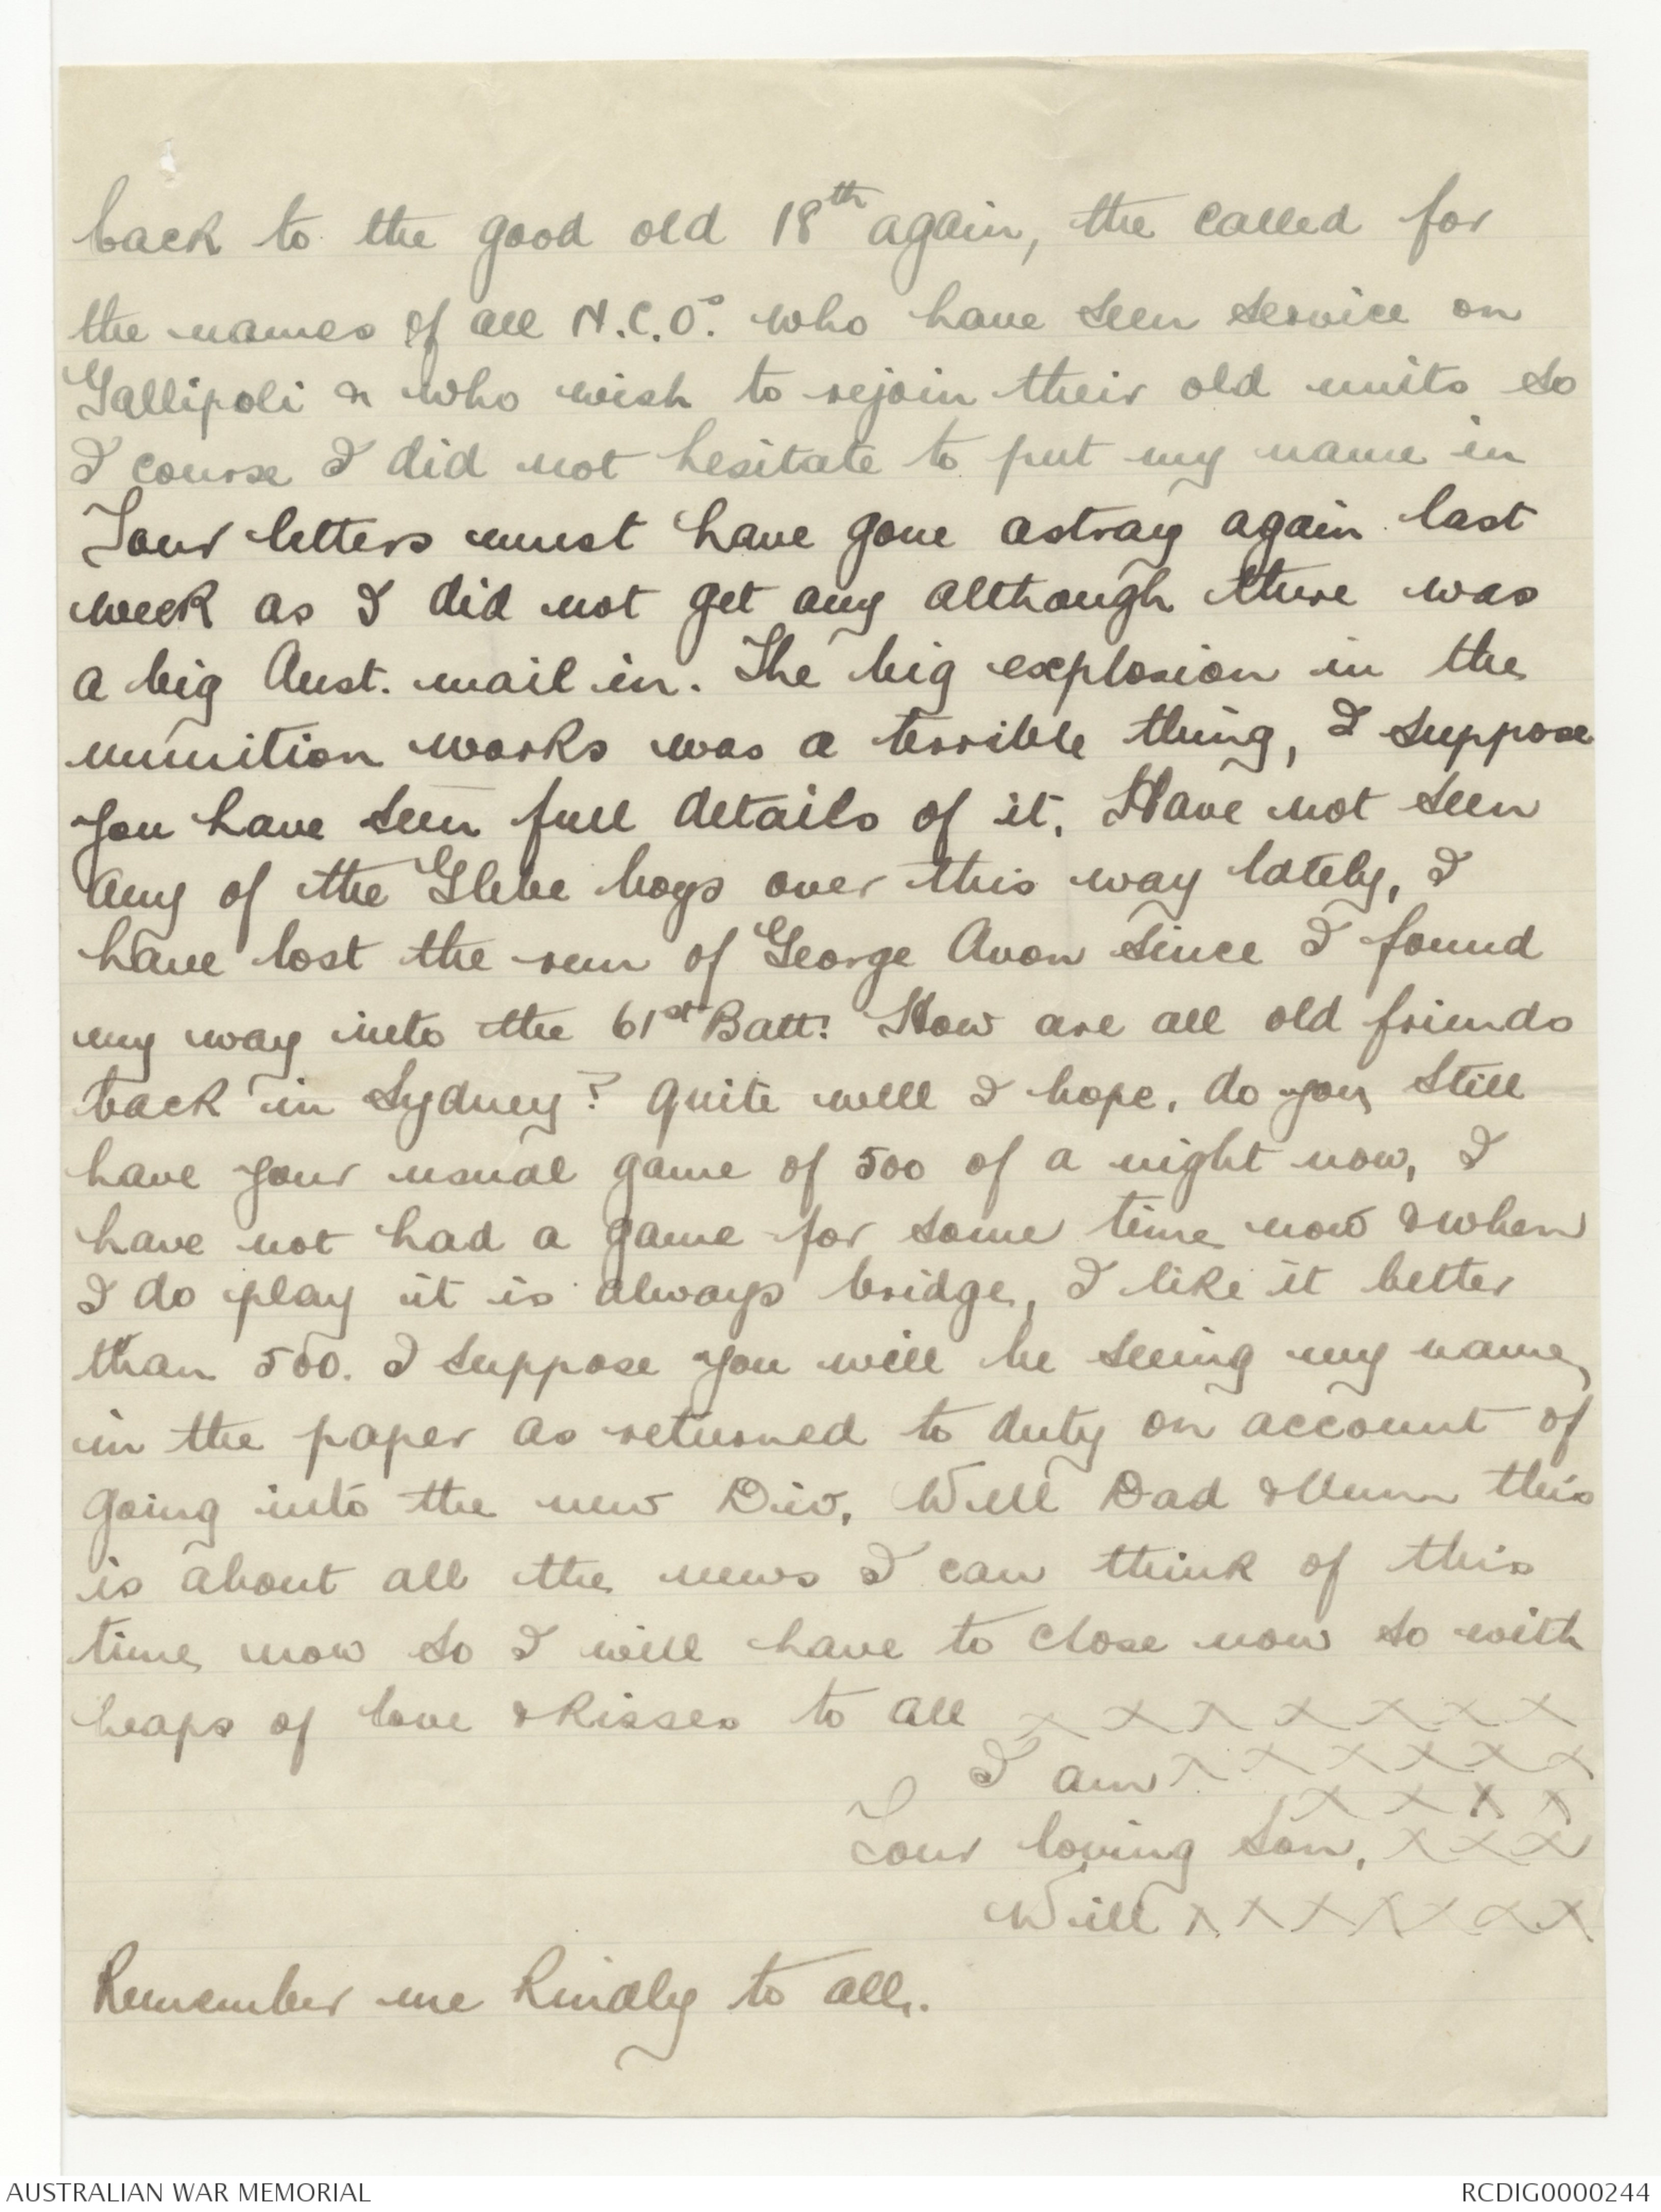 back to the good old 18th again, the called for
the names of all N.C.Os. who have seen service on
Gallipoli & who wish to rejoin their old units so
I course I did not hesitate to put my name in
Your letters must have gone astray again last
week as I did not get any although there was
a big Aust. mail in. The big explosion in the
munition works was a terrible thing, I suppose
you have seen full details of it. Have not seen
any of the Glebe boys over this way lately, I
have lost the run of George Avon since I found
my way into the 61st Batt: How are all old friends
back in Sydney? quite well I hope. do you still
have your usual game of 500 of a night now, I
have not had a game for some time now & when
I do play it is always bridge, I like it better
than 500. I suppose you will be seeing my name
in the paper as returned to duty on account of
going into the new Div. Well Dad & Mum this
is about all the news I can think of this
time now so I will have to close now so with
heaps of love & kisses to all x x x x x x x
I am x x x x x x
x x x x
Your loving Son, x x x
Will x x x x x x x
Remember me kindly to all.
AUSTRALIAN WAR MEMORIAL
RCDIG0000244